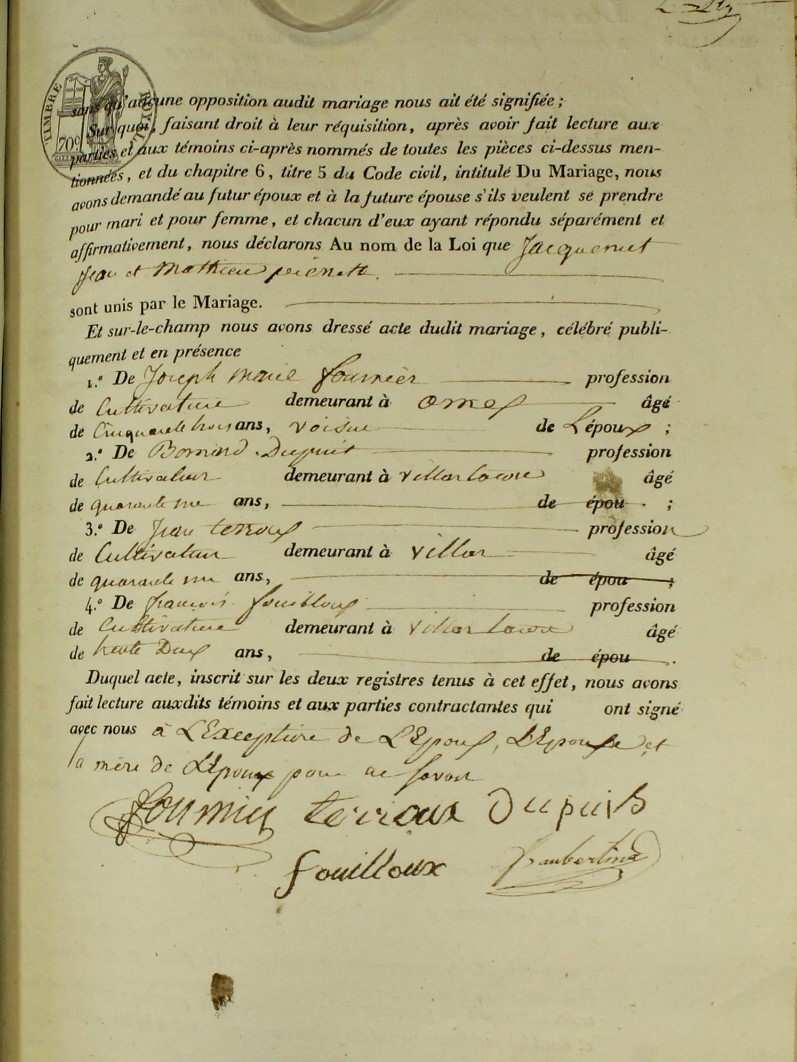 TIMBRE ROYAL
70c
sans qu'aucune opposition audit mariage nous ait été signifiée ;
Sur quoi, faisant droit à leur réquisition, après avoir fait lecture aux
parties et aux témoins ci-après nommés de toutes les pièces ci-dessus men-
tionnées, et du chapitre 6, titre 5 du Code civil, intitulé Du Mariage, nous
avons demandé au futur époux et à la future épouse s'ils veulent se prendre
pour mari et pour femme, et chacun d'eux ayant répondu séparément et
affirmativement, nous déclarons Au nom de la Loi que Jacquemet
Jean et Mathieu pierrette
sont unis par le Mariage.
Et sur-le-champ nous avons dressé acte dudit mariage, célébré publi-
quement et en présence
1.º De Joseph Marie fournier profession
de Cultivateur demeurant à Omes âgé
de Cinquante trois ans, voisin de L'époux ;
2.º De Dupuis profession
de Cultivateur demeurant à Villar âgé
de quarante un ans, de épou . ;
3.º De Jean terroux profession
de Cultivateur demeurant à Villar âgé
de quarante un ans, de épou ;
4.º De françois fouilloux profession
de Cultivateur demeurant à Villar âgé
de trente Deux ans, de épou .
Duquel acte, inscrit sur les deux registres tenus à cet effet, nous avons
fait lecture auxdits témoins et aux parties contractantes qui ont signé
avec nous à L'Exception de L'Epoux, L'Epouse et
la mère de L'Epoux pour ne savoir
fournier terroux Dupuis
fouilloux